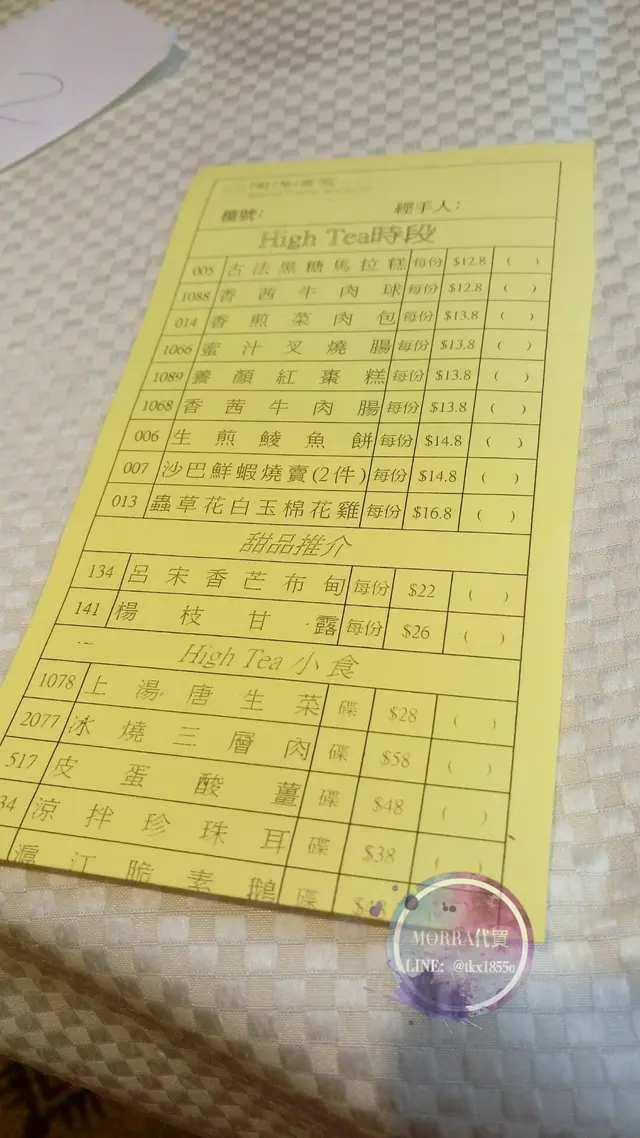 檯號： 經手人：
High Tea時段
005 古法黑糖馬拉糕 每份 $12.8 ( )
1088 香茜牛肉球 每份 $12.8 ( )
014 香煎菜肉包 每份 $13.8 ( )
1066 蜜汁叉燒腸 每份 $13.8 ( )
1089 養顏紅棗糕 每份 $13.8 ( )
1068 香茜牛肉腸 每份 $13.8 ( )
006 生煎鯪魚餅 每份 $14.8 ( )
007 沙巴鮮蝦燒賣(2件) 每份 $14.8 ( )
013 蟲草花白玉棉花雞 每份 $16.8 ( )
甜品推介
134 呂宋香芒布甸 每份 $22 ( )
141 楊枝甘露 每份 $26 ( )
High Tea 小食
1078 上湯唐生菜 碟 $28 ( )
2077 冰燒三層肉 碟 $58 ( )
517 皮蛋酸薑 碟 $48 ( )
34 涼拌珍珠耳 碟 $38 ( )
滬江脆素鵝 碟
MORRA代買
LINE: @tkx1855o